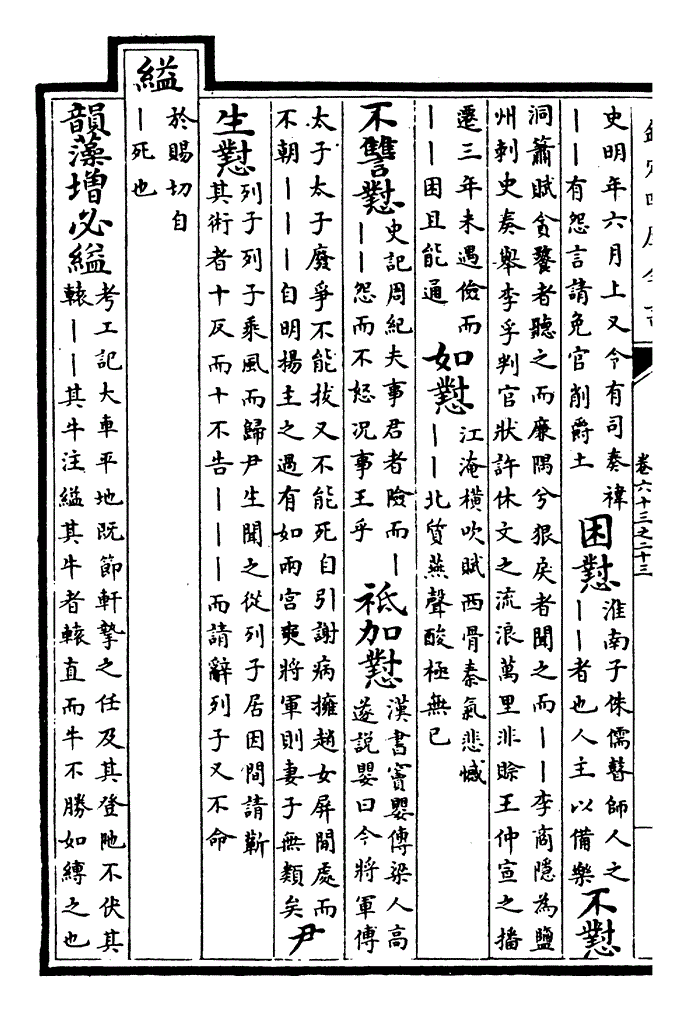 欽定四庫全書
卷六十三之二十三
史明年六月上又令有司奏禕
——有怨言請免官削爵土
困懟
淮南子侏儒瞽師人之
——者也人主以備樂
不懟
洞簫賦貪饕者聽之而廉隅兮狠戾者聞之而——李商隱為鹽
州刺史奏舉李孚判官狀許休文之流浪萬里非賒王仲宣之播
遷三年未遇儉而
——困且能通
如懟
江淹橫吹賦西骨秦氣悲憾
——北質燕聲酸極無已
不讐懟
史記周紀夫事君者險而—
——怨而不怒况事王乎
祗加懟
漢書竇嬰傳梁人高
遂説嬰曰今將軍傅
太子太子廢爭不能拔又不能死自引謝病擁趙女屏閒處而
不朝———自明揚主之過有如兩宮奭將軍則妻子無類矣
尹
生懟
列子列子乘風而歸尹生聞之從列子居因間請蘄
其術者十反而十不告———而請辭列子又不命
縊
於賜切自
—死也
韻藻增必縊
考工記大車平地既節軒摯之任及其登阤不伏其
轅——其牛注縊其牛者轅直而牛不勝如縛之也